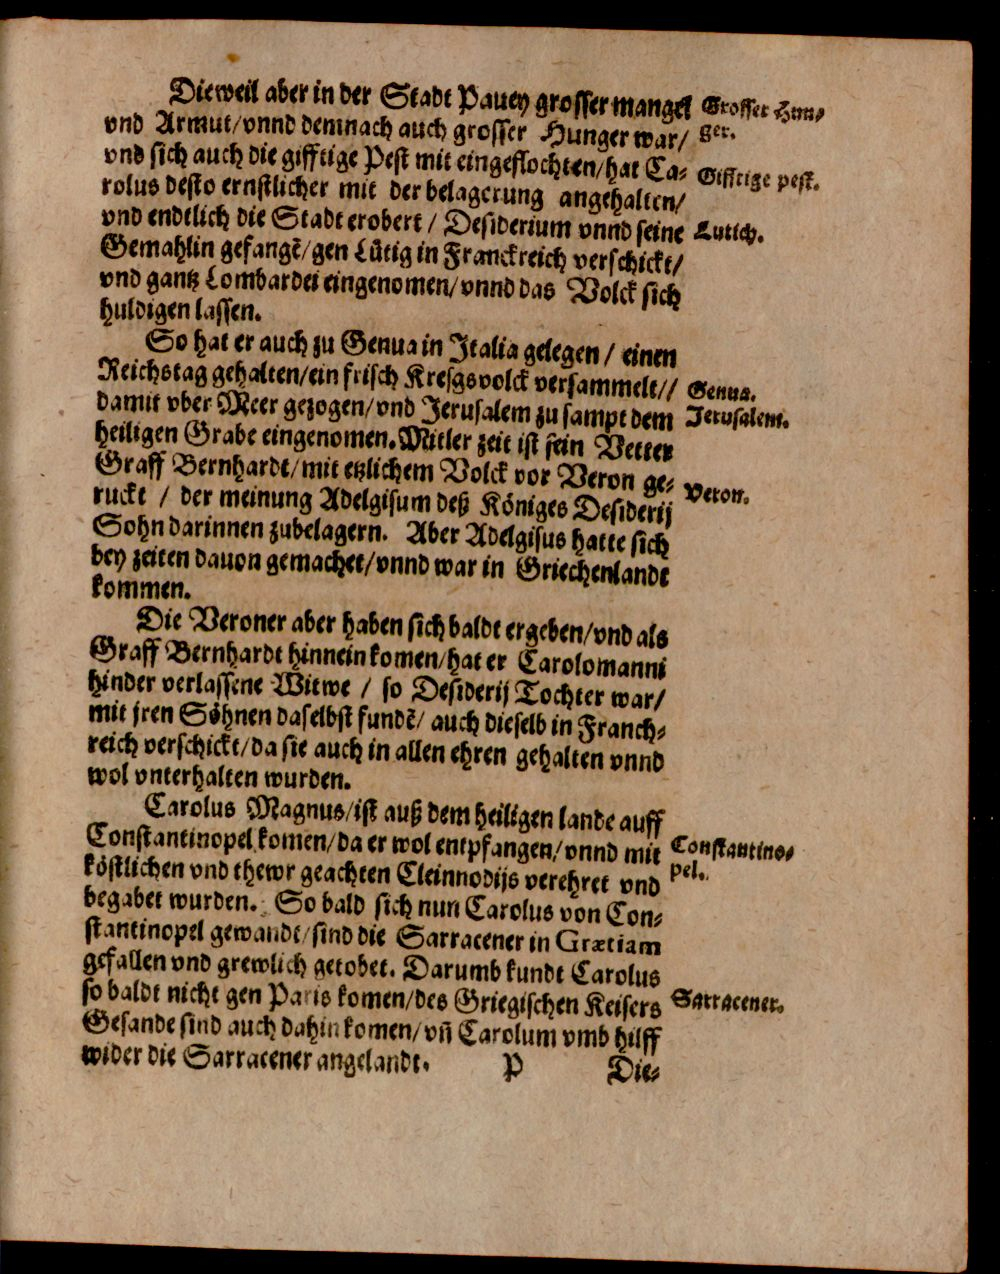 Dieweil aber in der Stadt Pauey grosser mangel
vnd Armut/vnnd demnach auch grosser Hunger war/
vnd sich auch die gifftige Pest mit eingeflochten/hat Ca-
rolus desto ernstlicher mit der belagerung angehalten/
vnd endtlich die Stadt erobert / Desiderium vnnd seine
Gemahlin gefangē/gen Lütig in Franckreich verschickt/
vnd gantz Lombardei eingenomen/vnnd das Volck sich
huldigen lassen.
So hat er auch zu Genua in Italia gelegen / einen
Reichstag gehalten/ein frisch Kresgsvolck versammelt//
damit vber Meer gezogen/vnd Jerusalem zu sampt dem
heiligen Grabe eingenomen. Mitler zeit ist sein Vetter
Graff Bernhardt/mit etzlichem Volck vor Veron ge-
ruckt / der meinung Adelgisum deß Königes Desiderij
Sohn darinnen zubelagern. Aber Adelgisus hatte sich
bey zeiten dauon gemachet/vnnd war in Griechenlandt
kommen.
Die Veroner aber haben sich baldt ergeben/vnd als
Graff Bernhardt hinnein komen/hat er Carolomanni
hinder verlassene Witwe / so Desiderij Tochter war/
mit jren Söhnen daselbst fundē/ auch dieselb in Franch-
reich verschickt/da sie auch in allen ehren gehalten vnnd
wol vnterhalten wurden.
Carolus Magnus/ist auß dem heiligen lande auff
Constantinopel komen/da er wol entpfangen/vnnd mit
köstlichen vnd thewr geachten Cleinnodijs verehret vnd
begabet wurden. So bald sich nun Carolus von Con-
stantinopel gewandt/sind die Sarracener in Grætiam
gefallen vnd grewlich getobet. Darumb kundt Carolus
so baldt nicht gen Paris komen/des Griegischen Keisers
Gesande sind auch dahin komen/vñ Carolum vmb hilff
wider die Sarracener angelandt.
P
Die-
Grosser Hun-
ger.
Gifftige pest.
Lutich.
Genua.
Jerusalem.
Veron.
Constantino-
pel.
Sarracener.